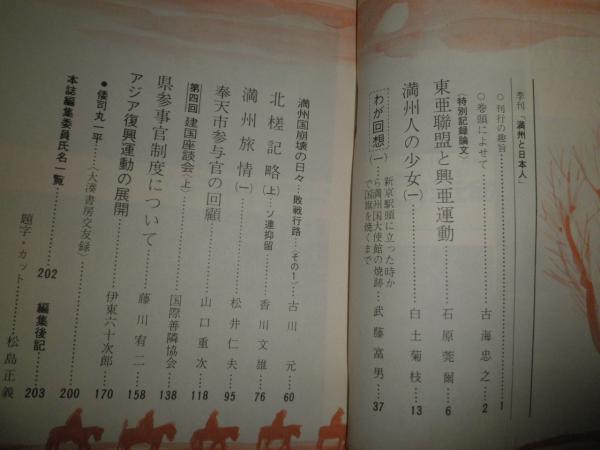 季刊「満州と日本人」
○刊行の趣旨……1
○巻頭によせて……古海忠之…2
〈特別記録論文〉
東亜聯盟と興亜運動……石原莞爾…6
満州人の少女(一)……白土菊枝…13
わが回想(一) 新京駅頭に立った時から満州国大使館の焼跡で国旗を焼くまで…武藤富男…37
満州国崩壊の日々…敗戦行路…〈その一〉…古川 元…60
北槎記略(上)…ソ連抑留……香川文雄…76
満州旅情(一)……松井仁夫…95
奉天市参与官の回顧……山口重次…118
第四回 建国座談会〈上〉……国際善隣協会…138
県参事官制度について……藤川宥二…158
アジア復興運動の展開……伊東六十次郎…170
●倭司丸一平…〈大湊書房交友録〉……200
本誌編集委員氏名一覧……202 編集後記……203
題字・カット……松島正義